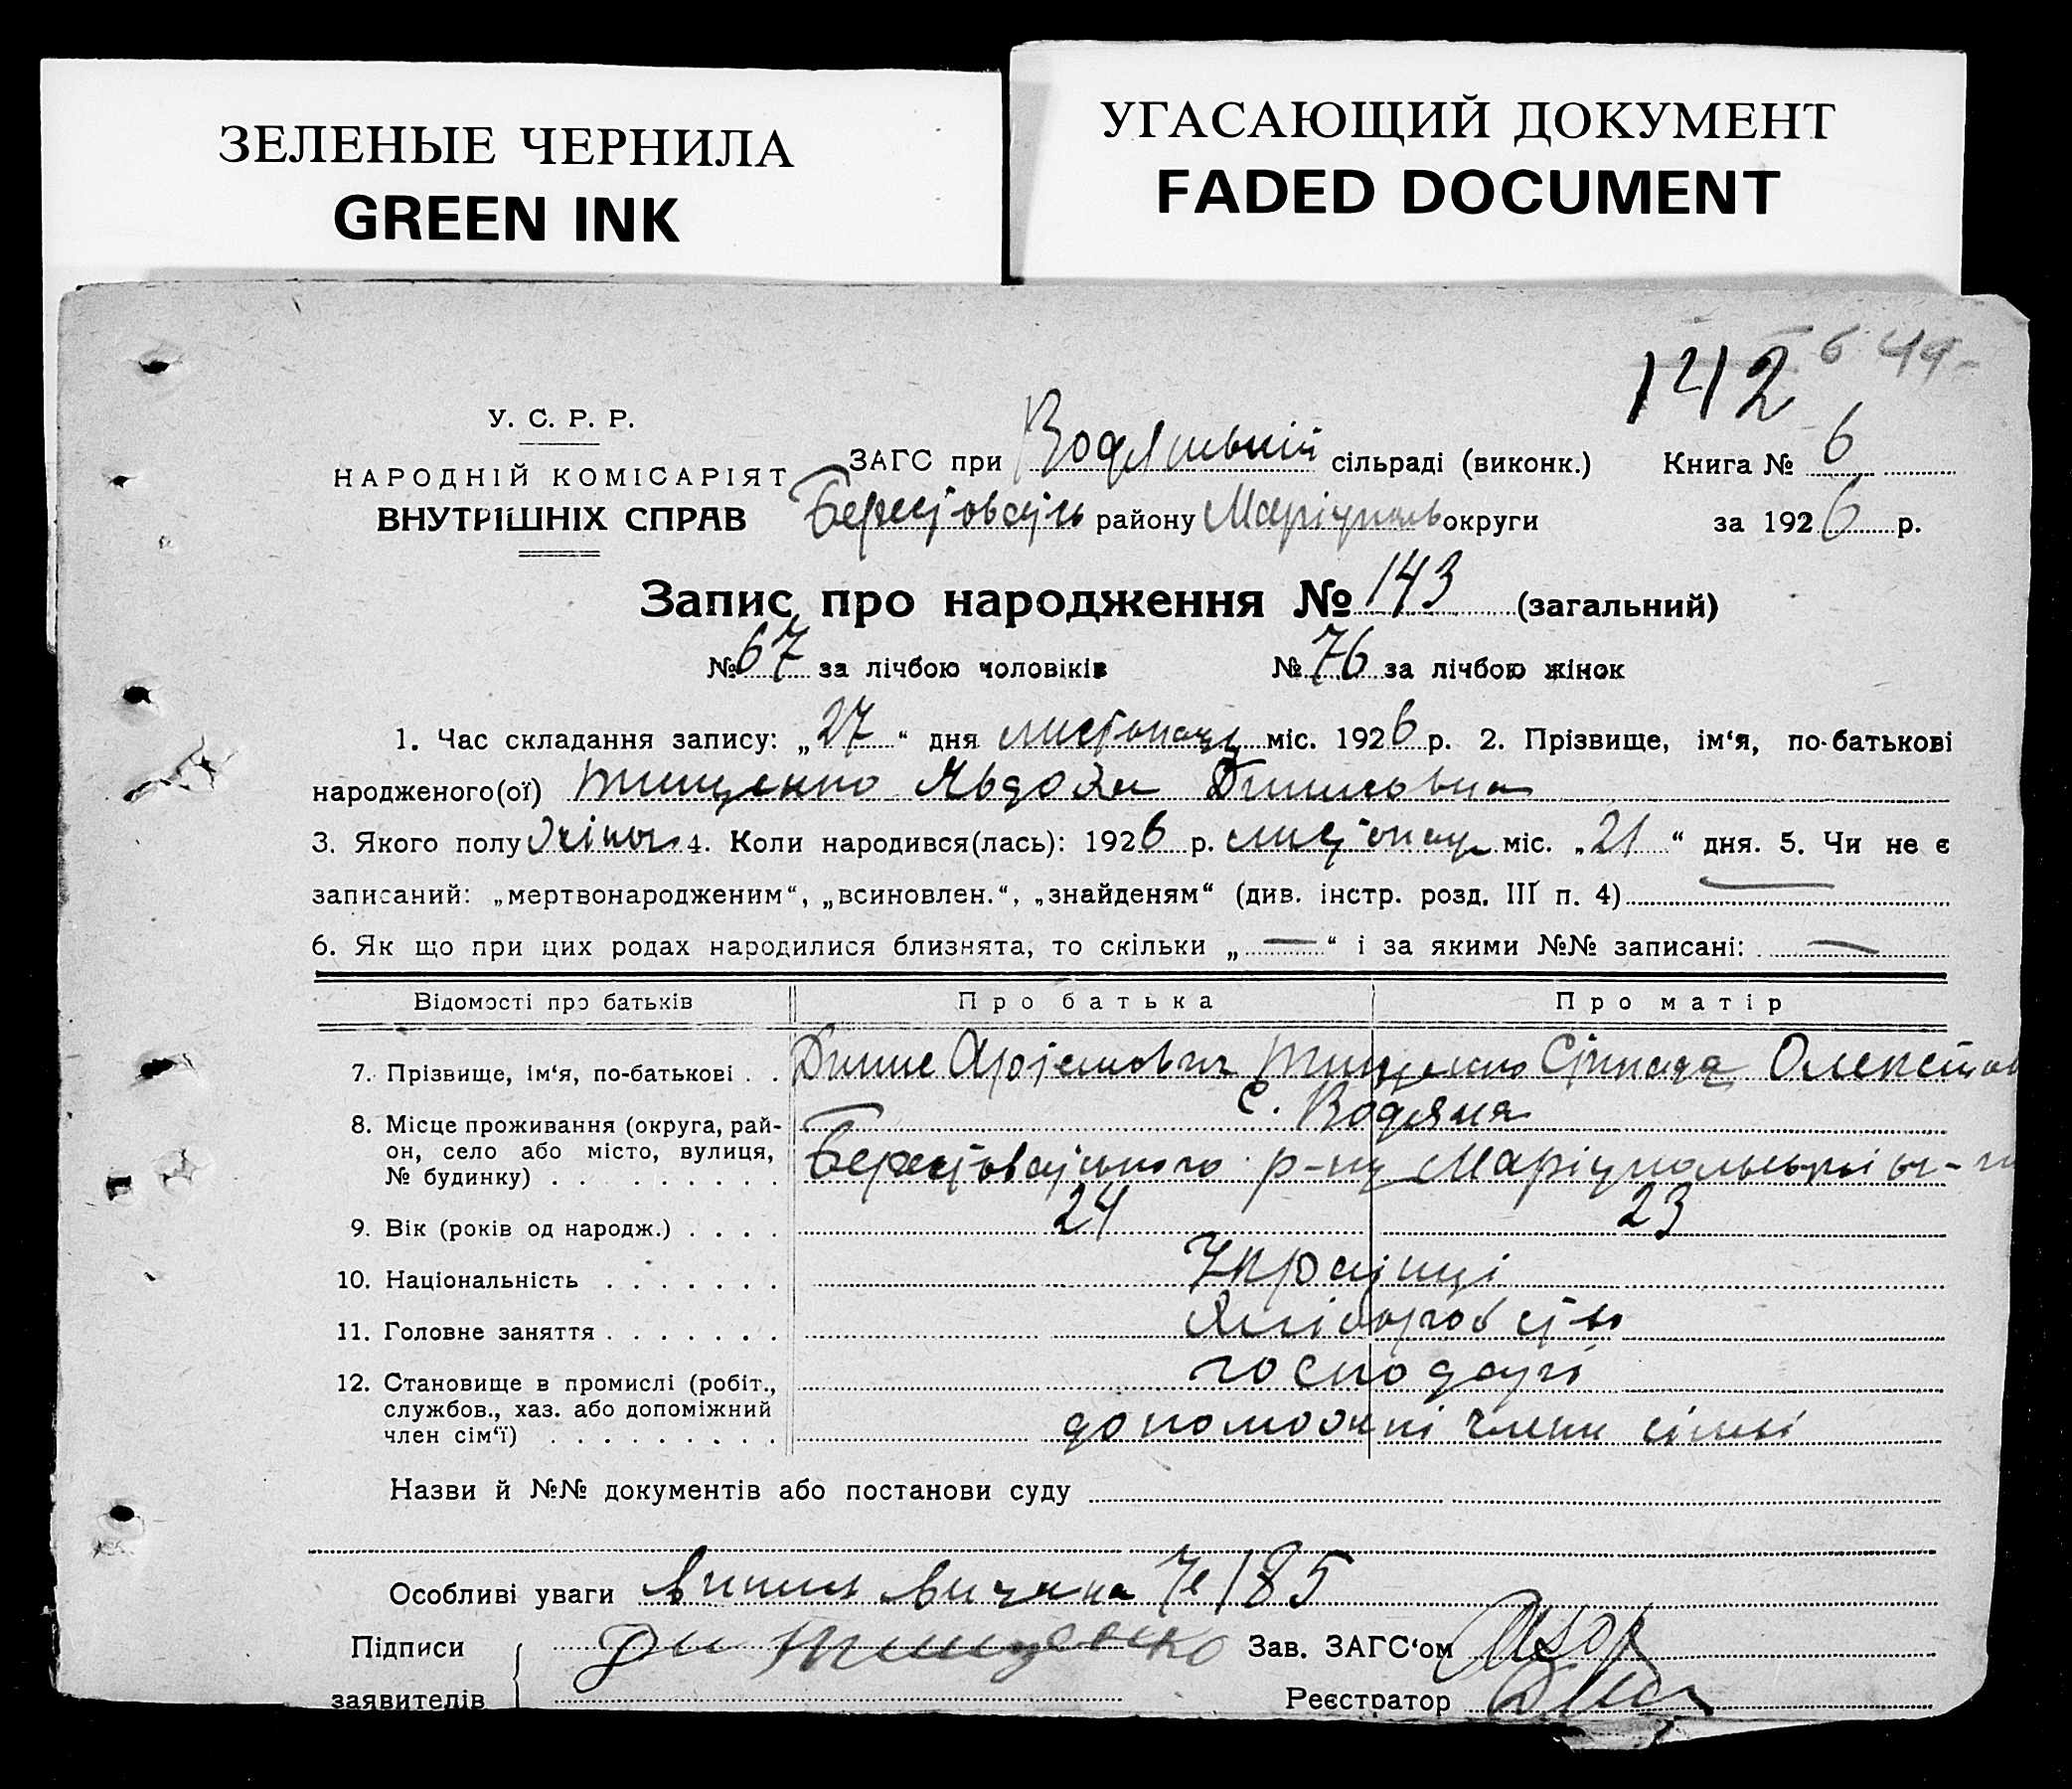 ЗЕЛЕНЫЕ ЧЕРНИЛА
GREEN INK
УГАСАЮЩИЙ ДОКУМЕНТ
FADED DOCUMENT
142 6 44
У. С. Р. Р.
НАРОДНІЙ КОМІСАРІЯТ
ВНУТРІШНІХ СПРАВ
ЗАГС при Водянській сільраді (виконк.) Книга № 6
району Маріуполь округи за 1926 р.
Запис про народження № 143 (загальний)
№ 67 за лічбою чоловіків № 76 за лічбою жінок
1. Час складання запису: „27“ дня листопаду міс. 1926 р. 2. Прізвище, ім‘я, по-батькові
народженого(ої) Тищенко Явдоха
3. Якого полу жіноч 4. Коли народився(лась): 1926 р. листопад міс. „21“ дня. 5. Чи не є
записаний: „мертвонародженим“, „всиновлен.“, „знайденям“ (див. інстр. розд. III п. 4) —
6. Як що при цих родах народилися близнята, то скільки „—“ і за якими №№ записані: —
Відомості про батьків
Про батька
Про матір
7. Прізвище, ім‘я, по-батькові . . Тищенко
с. Водяна
8. Місце проживання (округа, рай-
он, село або місто, вулиця,
№ будинку) . . . . . . . . . р-ну
9. Вік (років од народж.) . . . . 24 23
10. Національність . . . . . . . Українці
11. Головне заняття . . . . . . . Хліборобство
господарі
12. Становище в промислі (робіт.,
службов., хаз. або допоміжний
член сім‘ї) . . . . . . . . . допоможні члени сімьі
Назви й №№ документів або постанови суду
Особливі уваги 185
Підписи
заявителів
Тищенко
Зав. ЗАГС‘ом
Реєстратор